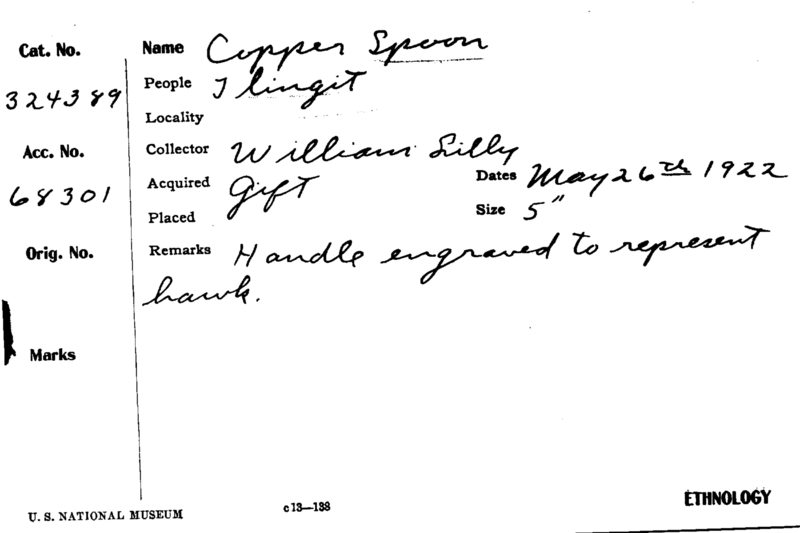 Cat. No.
324389
Acc. No.
68301
Orig. No.
Marks
Name Copper Spoon
People Tlingit
Locality
Collector William Lilly
Acquired Gift Dates May 26th 1922
Placed Size 5"
Remarks Handle engraved to represent
hawk.
U. S. NATIONAL MUSEUM
c13—138
ETHNOLOGY